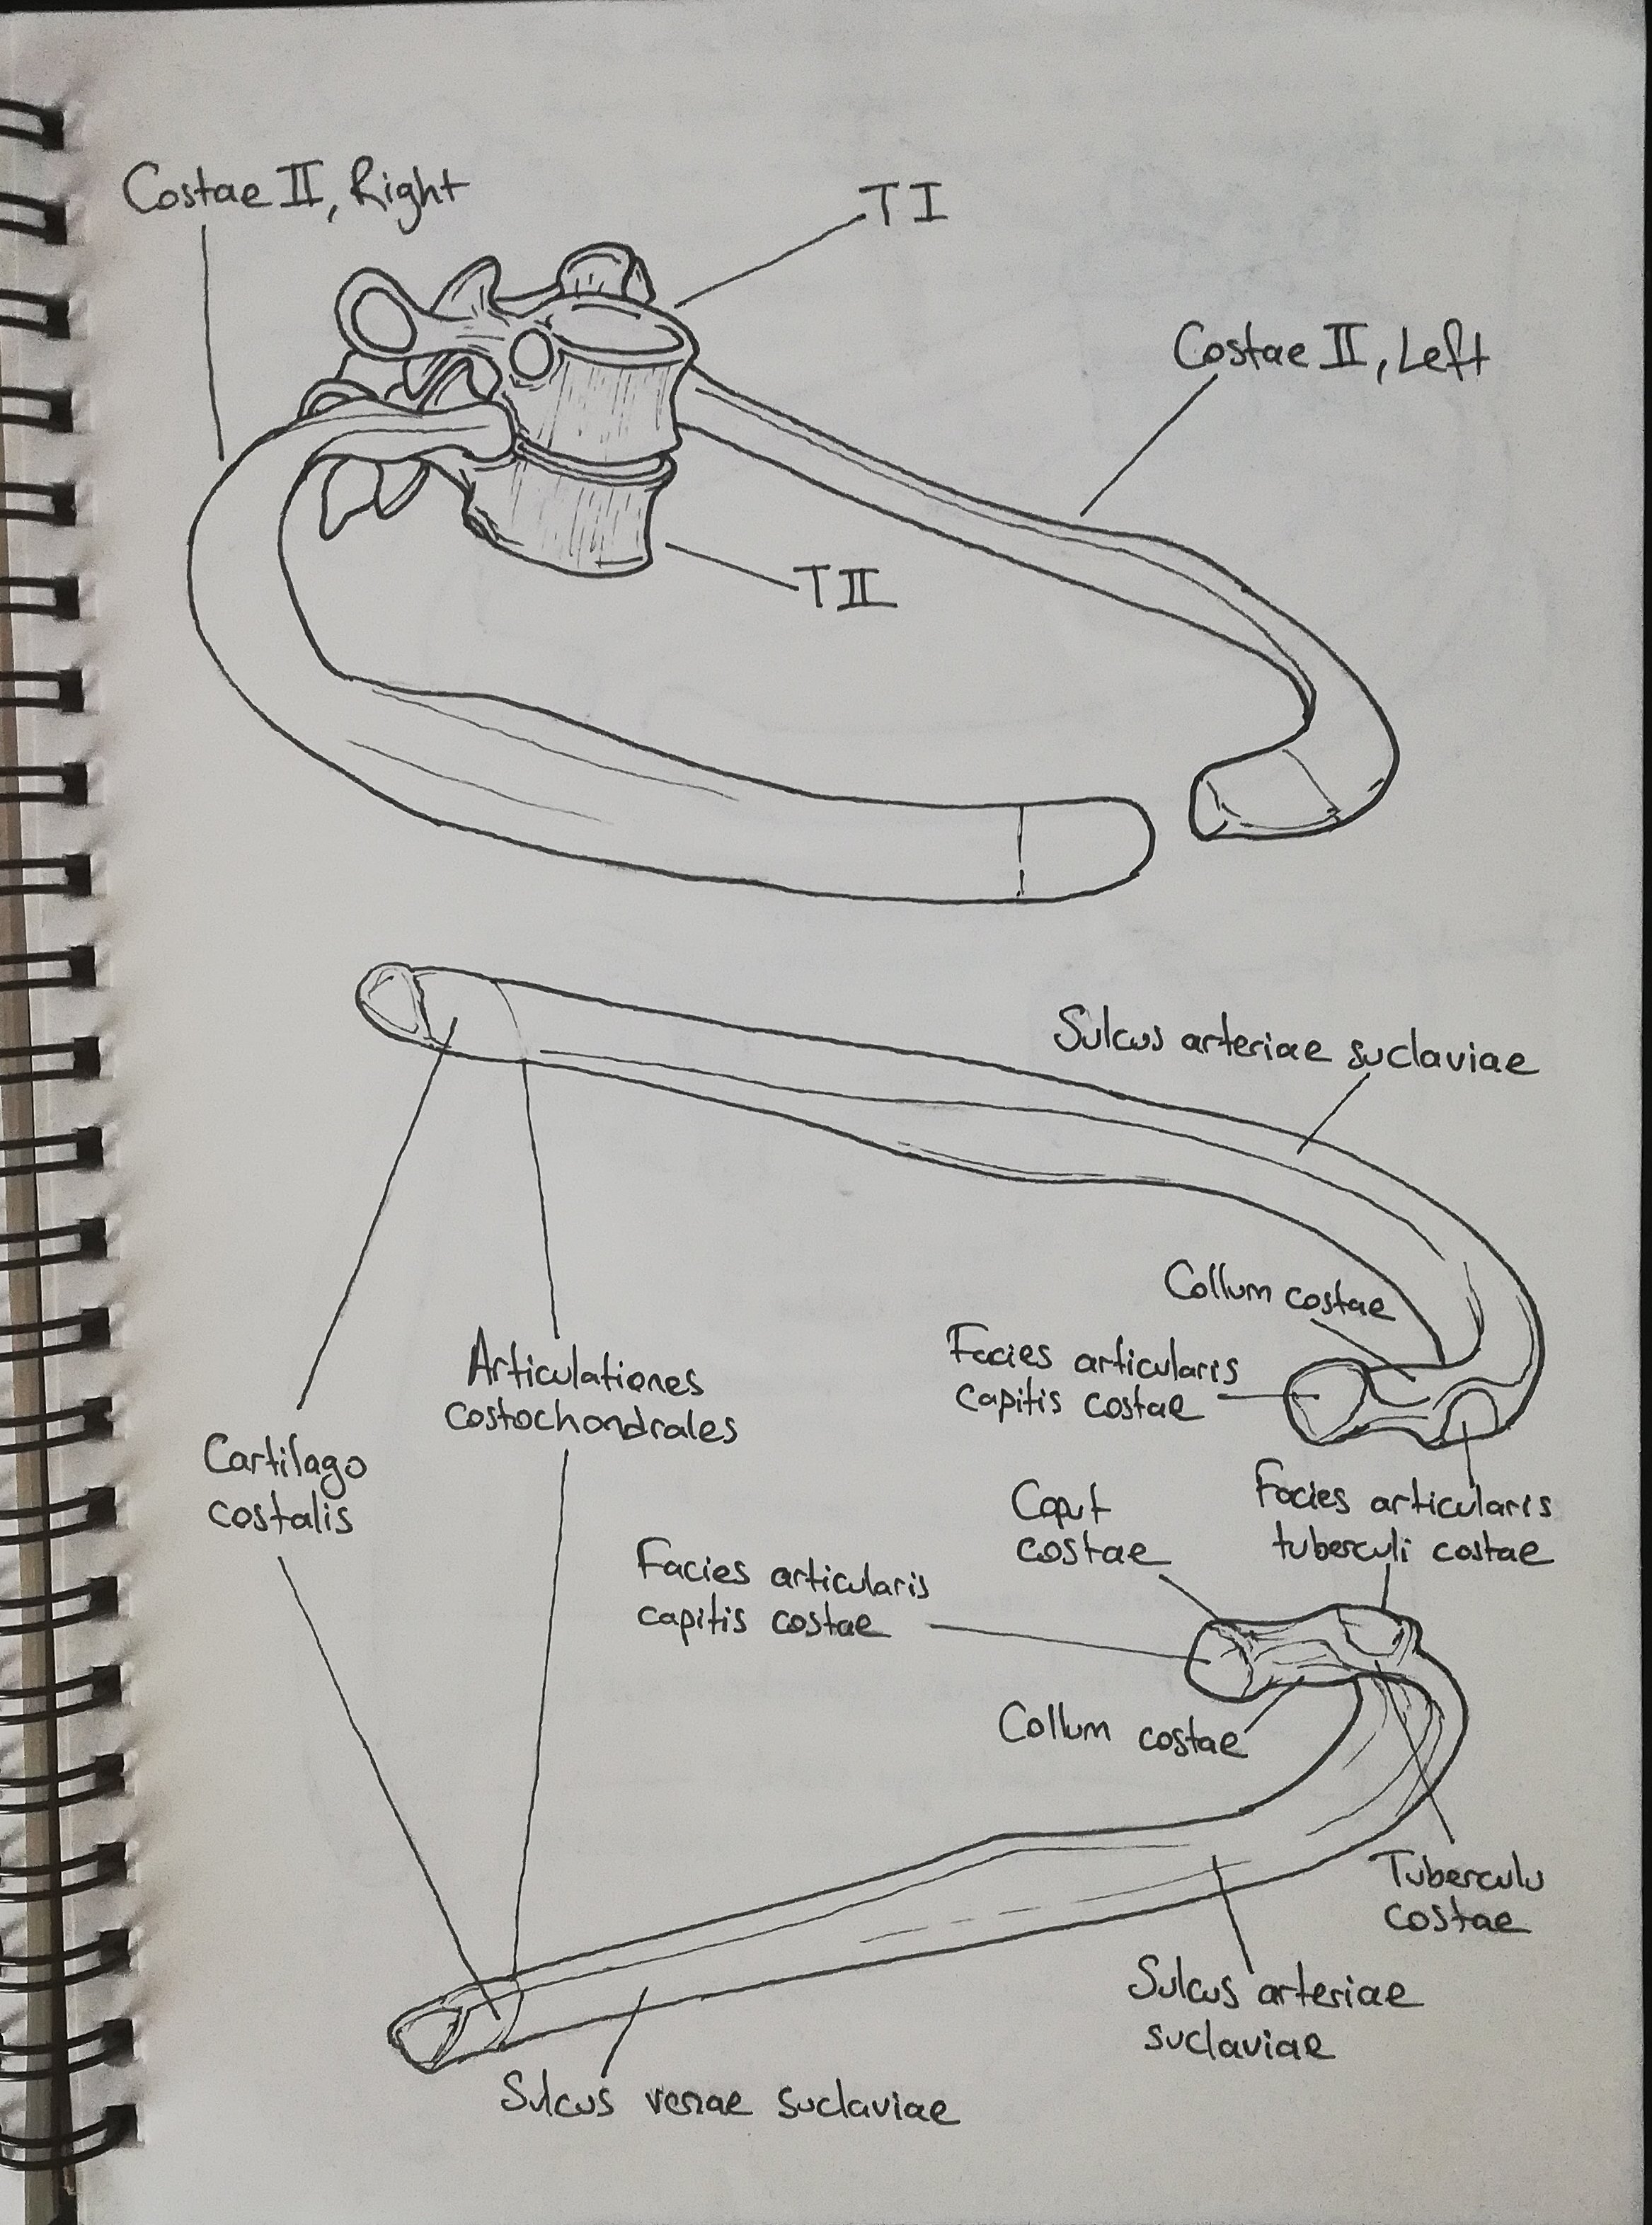 Costae II, Right
T I
Costae II, Left
T II
Sulcus arteriae suclaviae
Collum costae
Facies articularis
capitis costae
Articulationes
costochondrales
Cartilago
costalis
Facies articularis
tuberculi costae
Caput
costae
Facies articularis
capitis costae
Collum costae
Tuberculu
costae
Sulcus arteriae
suclaviae
Sulcus venae suclaviae